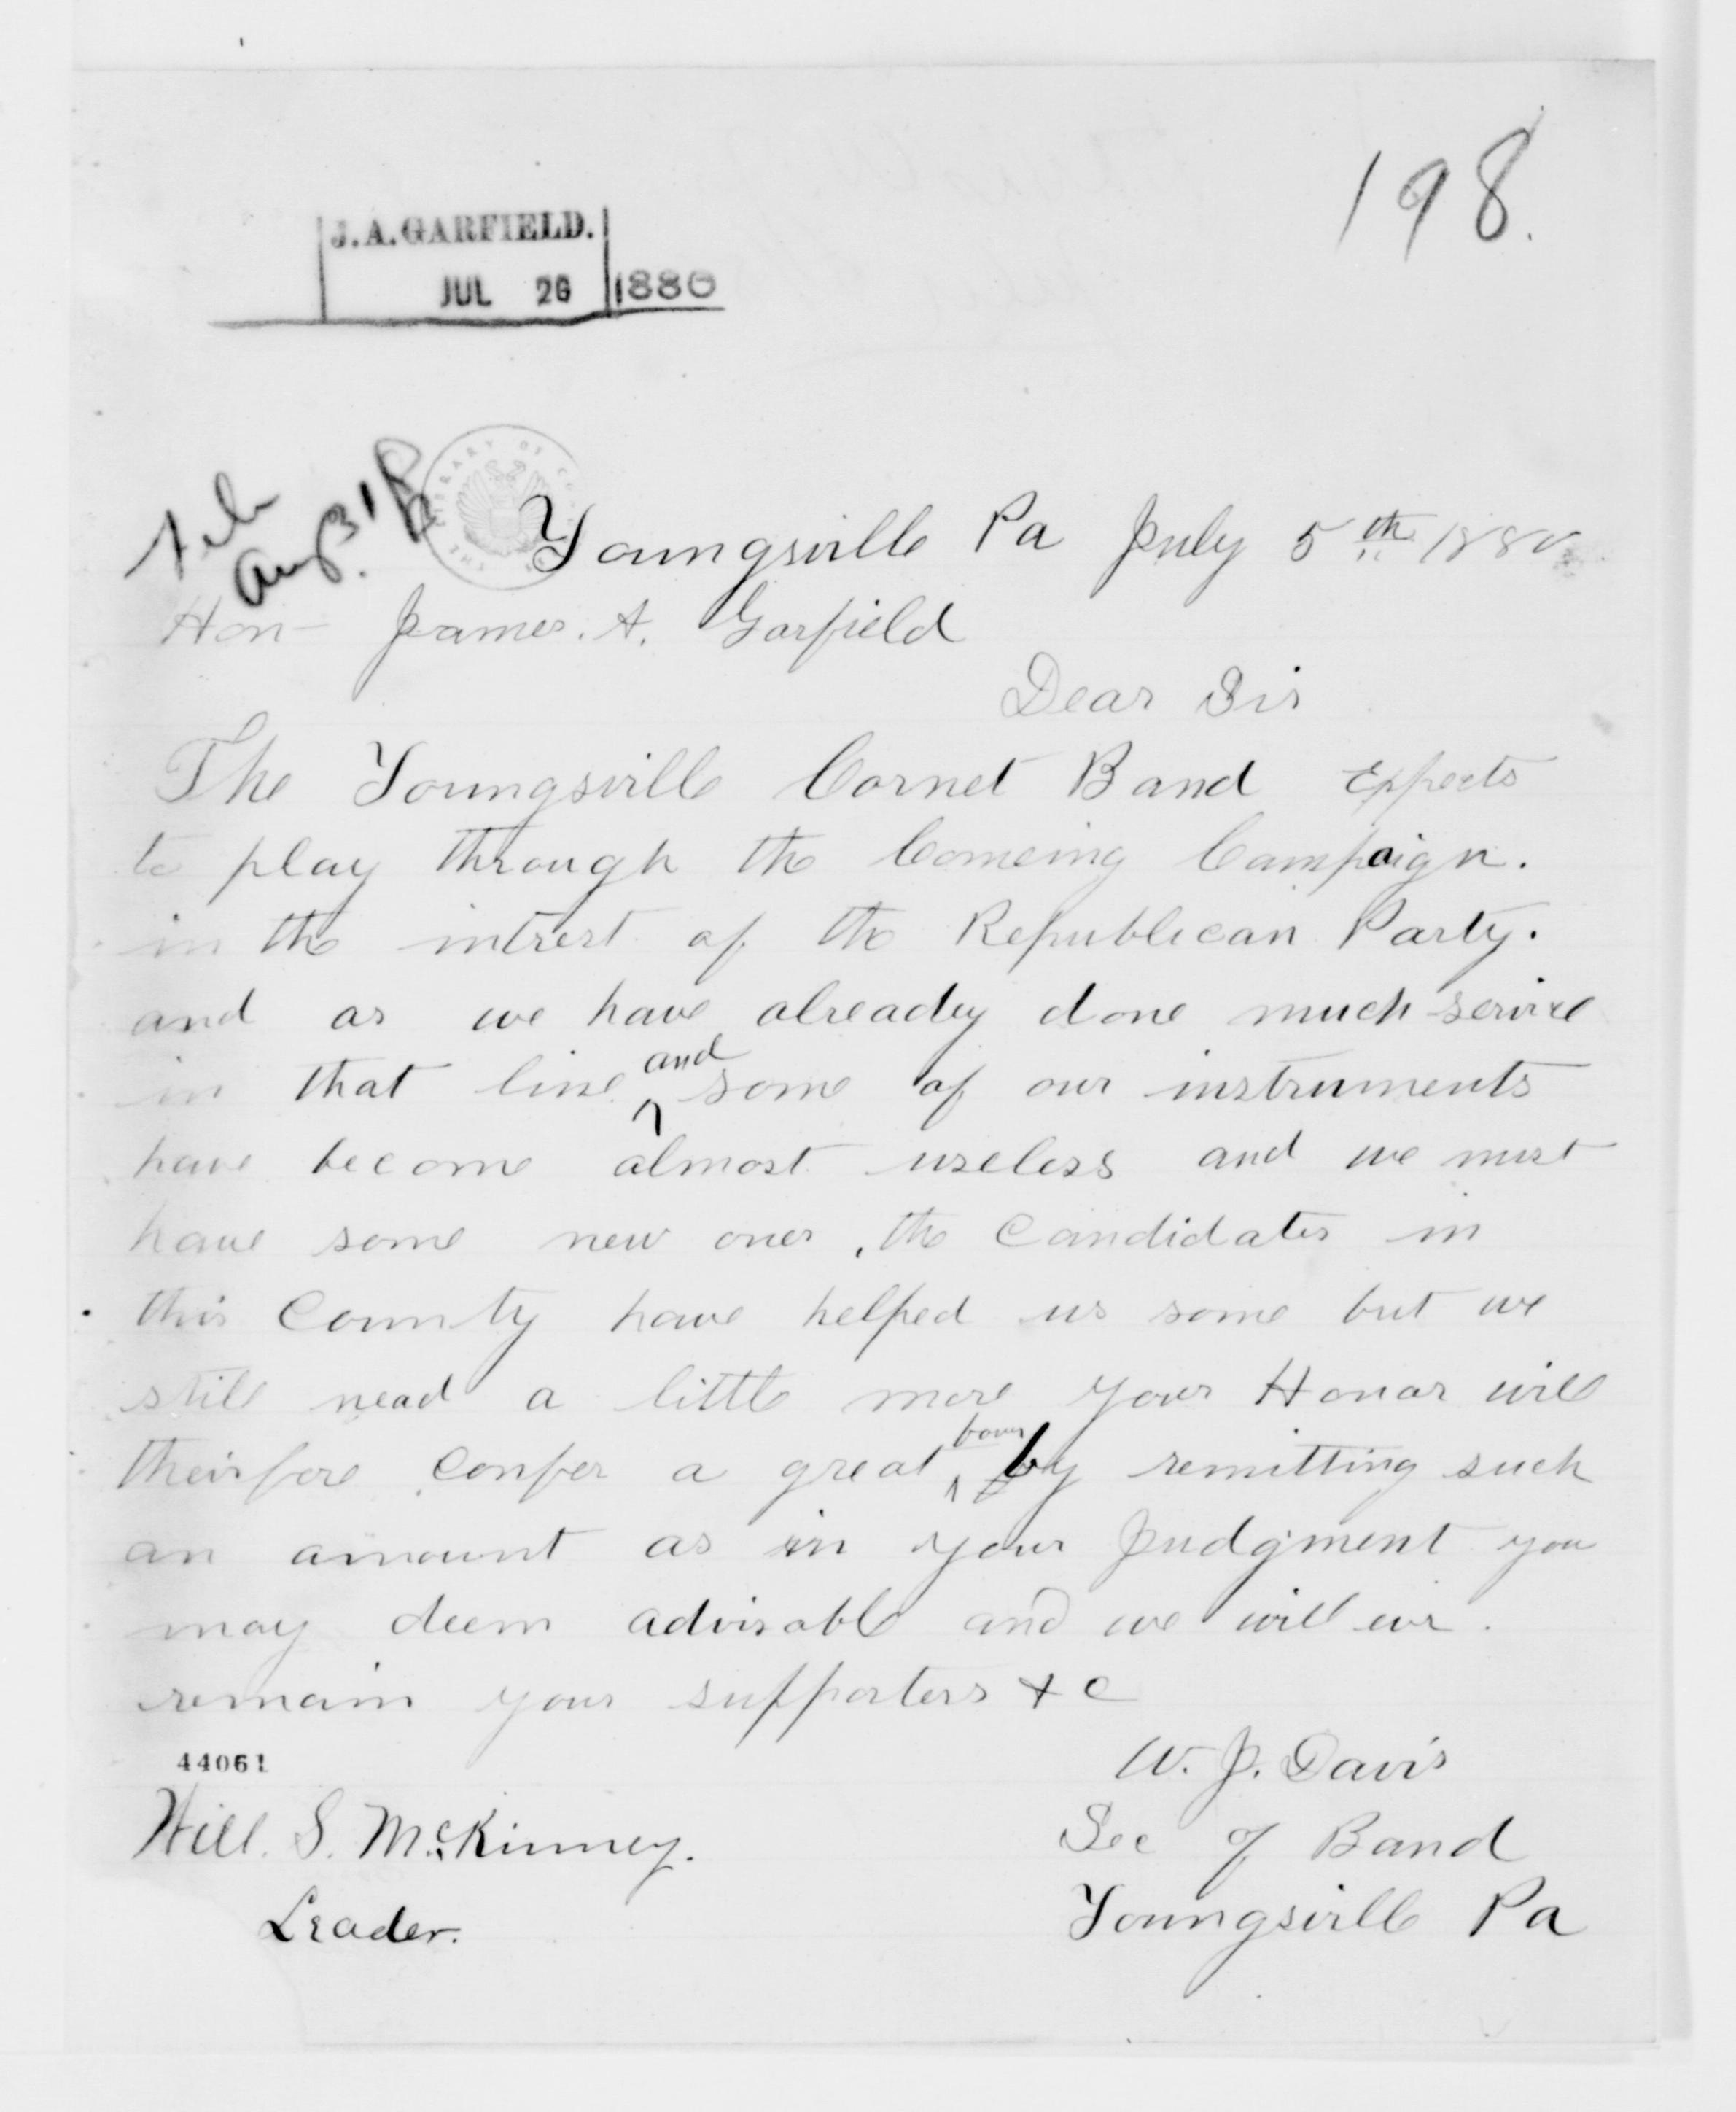 198.
J.A.GARFIELD.
JUL 26 1880
Aug 3 / 80
Youngsville Pa July 5th 1880
Hon James. A. Garfield
Dear Sir
The Youngsville Cornet Band Expects
to play through the Comeing Campaign.
in the intrest of the Republican Party.
and as we have already done much service
in that line and some of our instruments
have become almost useless and we must
have some new ones, the Candidates in
this County have helped us some but we
still nead a little more your Honor will
theirfore confer a great by remitting such
an amount as in your Judgment you
may deem advisable and we will ever
remain your supporters &c
44061
W. J. Davis
Will. S. McKinney.
Sec of Band
Leader.
Youngsville Pa